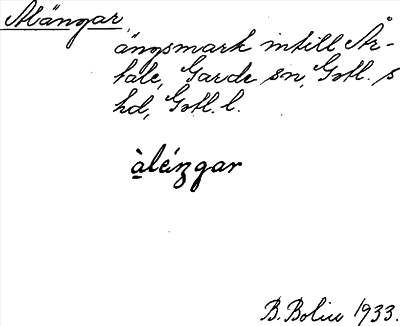 Alängar,
ängsmark intill Är-
tale, Garde sn, Gotl. s
hd, Gotl. l.
àléŋgar
B. Bolin 1933.